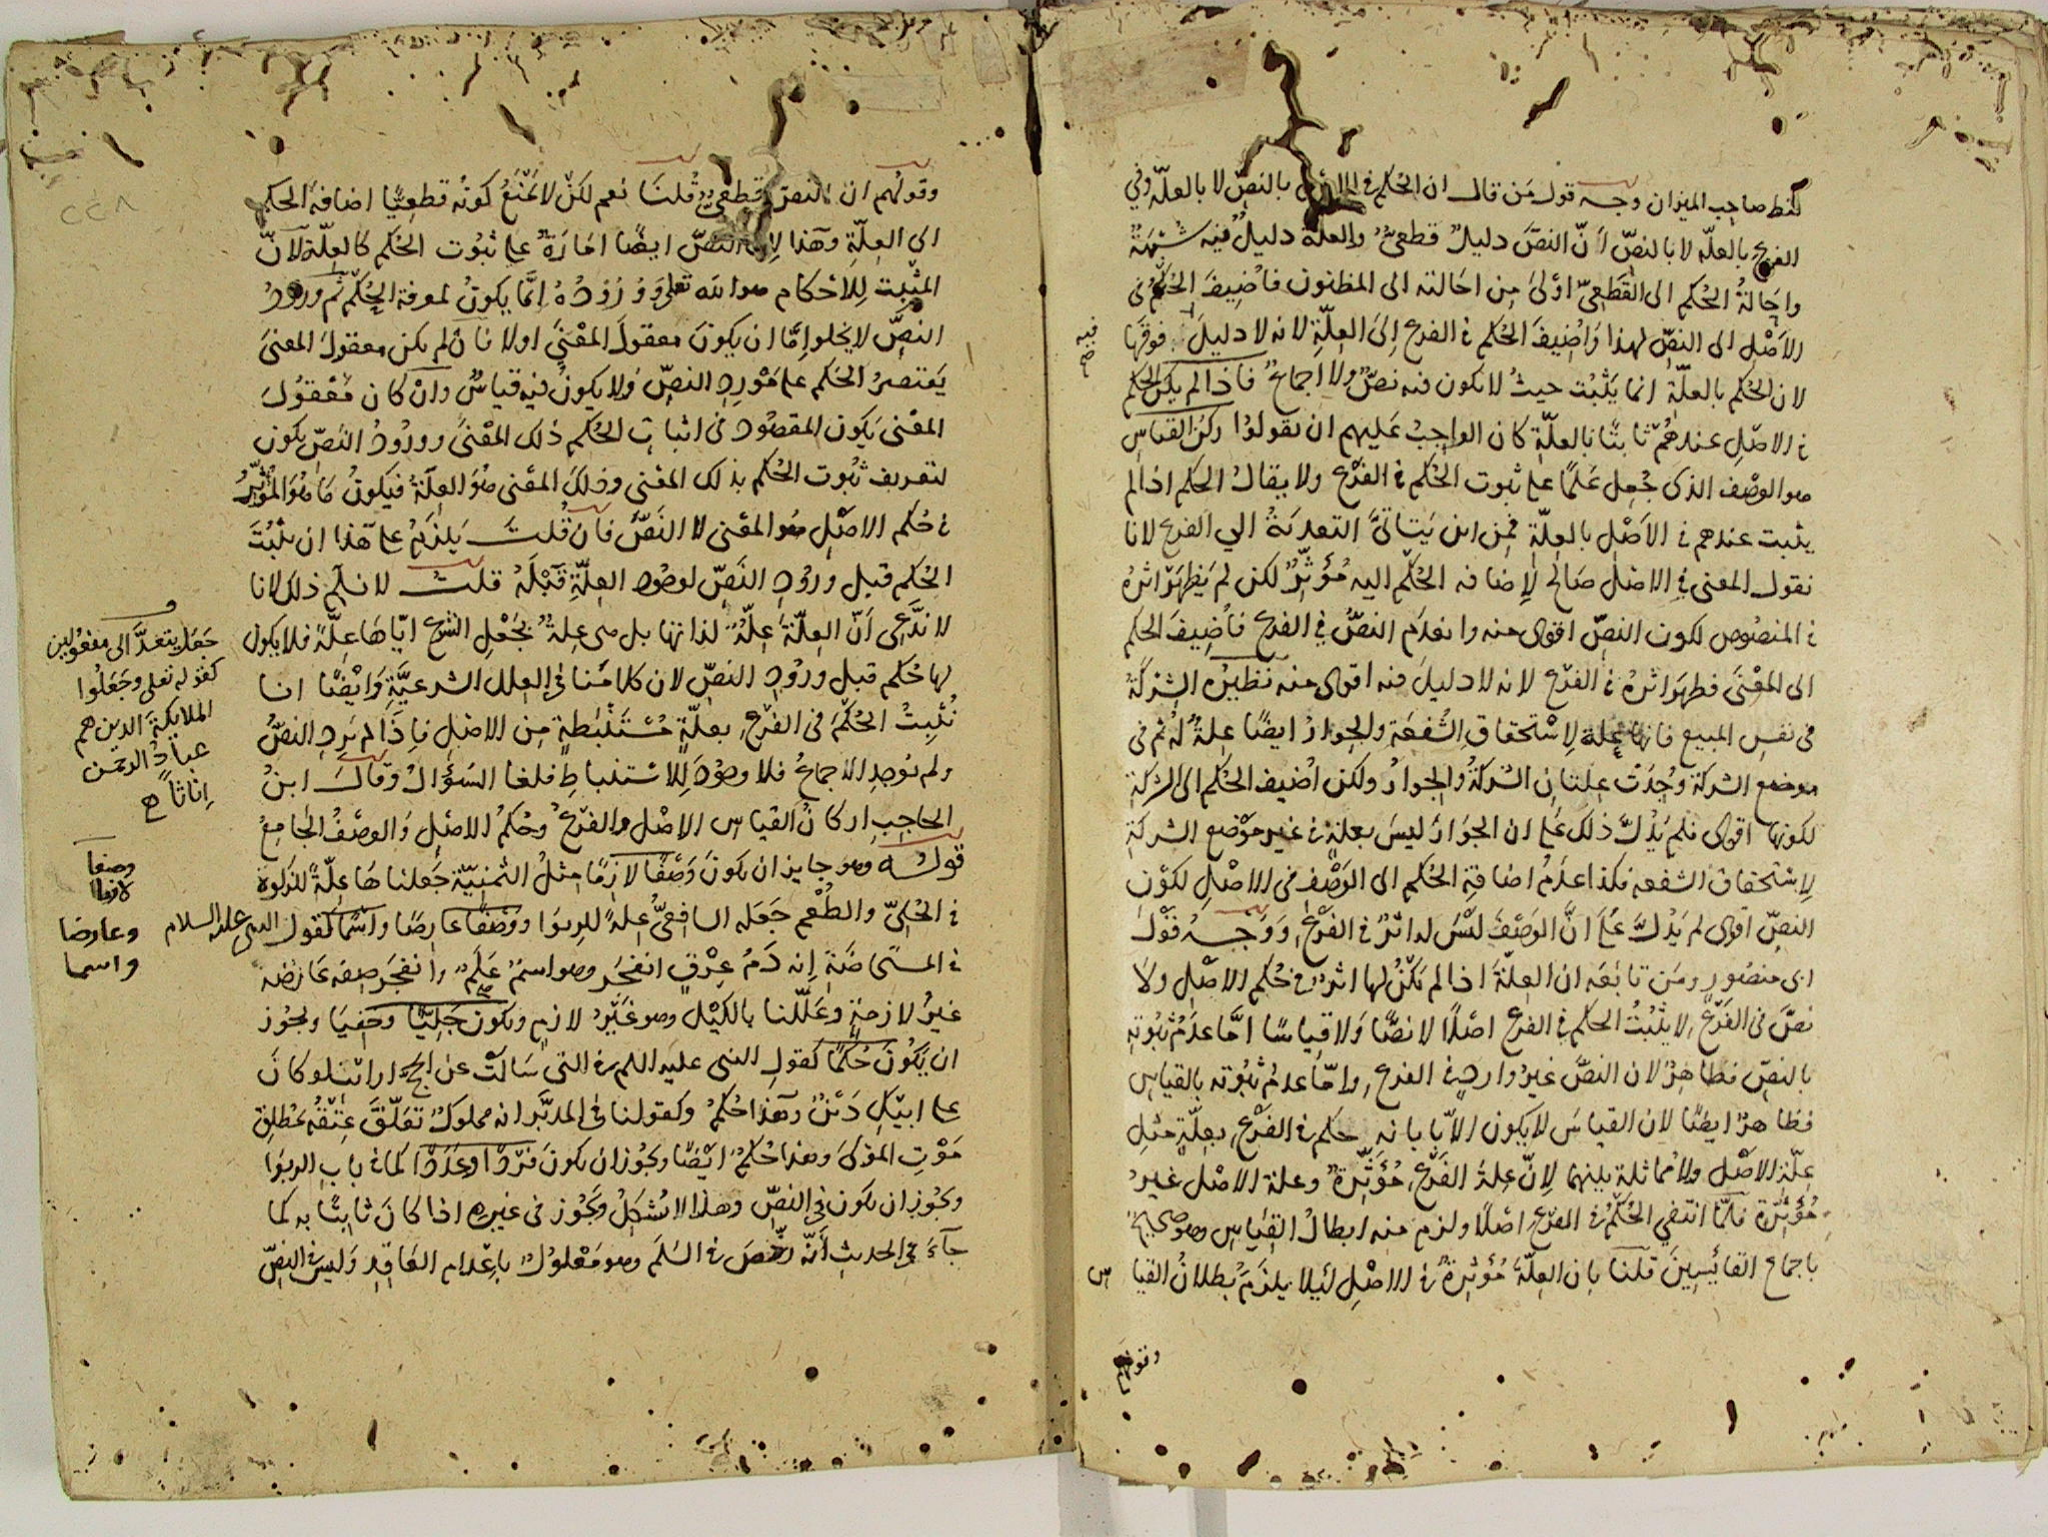 لفظ صاحب الميزان وجه قول من قال ان الحكم في الاصل بالنصّ لا بالعلّة وفي
الفرع بالعلّة لا بالنصّ أنّ النصّ دليلٌ قطعيٌّ والعلّة دليلٌ فيه شبهةٌ
واحالةُ الحكم الى القطعيّ اولى من احالته الى المظنون فاضيف الحكم في
الاصل الى النصّ لهذا واضيف الحكم في الفرع الى العلّة لانه لا دليل فوقها
فيه صح
لان الحكم بالعلّة انما يثبت حيث لا يكون فيه نصٌّ ولا اجماعٌ فاذا لم يكن الحكم
في الاصل عندهم ثابتا بالعلّة كان الواجب عليهم ان يقولوا ركن القياس
هو الوصف الذي جُعل علمًا على ثبوت الحكم في الفرع ولا يقال الحكم اذا لم
يثبت عندهم في الاصل بالعلّة فمن اين يتاتّى التعدية الى الفرع لانا
نقول المعنى في الاصل صالح لاضافة الحكم اليه مؤثّرٌ لكن لم يظهر اثره
في المنصوص لكون النصّ اقوى منه وانعدم النصّ في الفرع فأضيف الحكم
الى المعنى فظهر اثره في الفرع لانه لا دليل فيه اقوى منه نظيره الشركة
في نفس المبيع فانها علة لاستحقاق الشفعة والجوار ايضًا علةٌ له ثم في
موضع الشركة وُجدت علتان الشركةُ والجوارُ ولكن اضيف الحكم الى الشركة
لكونها اقوى فلم يدلّ ذلك على ان الجوار ليس بعلة في غير موضع الشركة
لاستحقاق الشفعة فكذا عدم اضافة الحكم الى الوصف في الاصل لكون
النصّ اقوى لم يدلّ على انّ الوصف ليس له اثرٌ في الفرع ووجه قول
ابى منصور ومن تابعه ان العلّة اذا لم تكن لها اثرٌ في حكم الاصل ولا
نصّ في الفرع لا يثبت الحكم في الفرع اصلًا لا نصًّا ولا قياسًا امّا عدم ثبوته
بالنصّ فظاهرٌ لان النصّ غير واردٍ في الفرع وامّا عدم ثبوته بالقياس
فظاهرٌ ايضًا لان القياس لا يكون الا بابانة حكم في الفرع بعلّة مثل
علّة الاصل ولا مماثلة بينهما لانّ علة الفرع مؤثّرةٌ وعلة الاصل غير
مؤثّرة فلمّا انتفي الحكم في الفرع اصلًا ولزم منه ابطال القياس وهو صحيحٌ
باجماع القائسين قلنا بان العلّة مؤثرةٌ في الاصل لئلا يلزم بطلان القياس
وقولهم
وقولهم ان النصّ قطعيٌّ قلنا نعم لكن لا نمنع كونه قطعيًّا اضافة الحكم
الى العلّة وهذا لان النصّ ايضًا امارةٌ على ثبوت الحكم كالعلّة لانّ
المثبت للاحكام هو الله تعلى وورُودُهُ انّما يكون لمعرفة الحكم ثم ورود
النصّ لا يخلوا امّا ان يكون معقول المعنى اولا فان لم يكن معقول المعنى
يقتصر الحكم على مورد النصّ ولا يكون فيه قياسٌ وان كان معقول
المعنى يكون المقصود في اثبات الحكم ذلك المعنى وورود النصّ يكون
لتعريف ثبوت الحكم بذلك المعنى وذلك المعنى هو العلّة فيكون ما هو المؤثّر
في حكم الاصل هو المعنى لا النصّ فان قلت يلزم على هذا ان يثبت
الحكم قبل ورود النصّ لوجود العلّة قبله قلت لا نسلّم ذلك لانا
لا ندّعى أنّ العلّة علّةٌ لذاتها بل هي علةٌ بجعل الشرع ايّاها علّةً فلا يكون
لها حكم قبل ورود النصّ لان كلامنا في العلل الشرعيّة وايضًا انا
نُثبتُ الحكم في الفرع بعلّةٍ مستنبطةٍ من الاصل فاذا لم يرد النصّ
ولم يوجد الاجماعُ فلا وجود للاستنباط فلغا السؤال وقال ابنُ
الحاجب اركان القياس الاصل والفرعُ وحكمُ الاصل والوصف الجامعُ
قوله وهو جايز ان يكون وصفًا لازمًا مثل الثمنيّة جعلناها علّةً للزكوة
في الحُليّ والطُعْم جعله الشافعيُّ علةً للربوا ووصفًا عارضًا واسمًا كقول النبي عليه السلام
في المستحاضة إنه دمُ عِرْقٍ انفجر وهو اسمٌ علمٌ وانفجر صفة عارضة
غير لازمةٍ وعلّلنا بالكيل وهو غير لازم ويكون جليًّا وخفيّا ويجوز
ان يكون حكمًا كقول النبي عليه السلم في التي سالت عن الحجّ ارايت لو كان
على ابيكِ دينٌ وهذا حكمٌ وكقولنا في المدبّر انه مملوكٌ تعلّق عتقُه بمطلق
موت المولى وهذا حكمٌ ايضًا ويجوز ان يكون فردًا وعددًا كما في باب الربوا
ويجوز ان يكون في النصّ وهذا لا يشكل ويجوز في غيره اذا كان ثابتًا به كما
جاءَ في الحديث أنّه رخّص في السلم وهو معلولٌ باعدام العاقد وليس في النصّ
جعل يتعدّى الى مفعولين
كقوله تعلى وجعلوا
الملايكة الذين هم
عبادُ الرحمن
اناثا
وصفا
لازما
وعارضا
واسما
٢٢٨